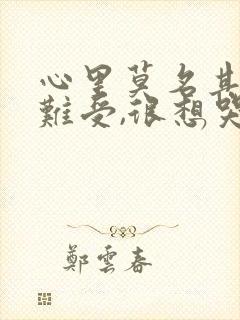 心里莫名其
難受,很想哭
鄭雲春